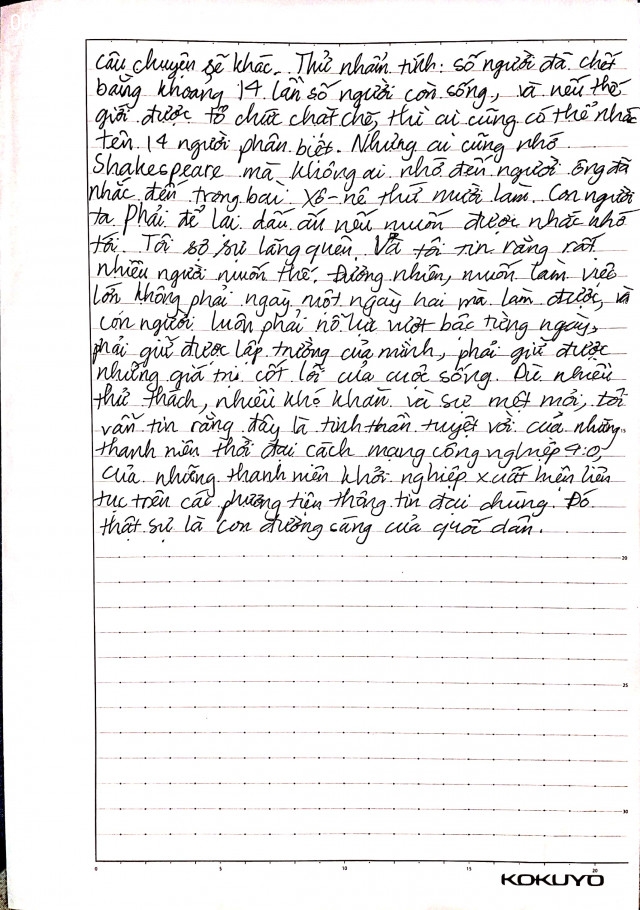 câu chuyện sẽ khác. Thử nhẩm tính: số người đã chết
bằng khoảng 14 lần số người còn sống, và nếu thế
giới được tổ chức chặt chẽ, thì ai cũng có thể nhắc
tên 14 người phân biệt. Nhưng ai cũng nhớ
Shakespeare mà không ai nhớ đến người ông đã
nhắc đến trong bài Xô-nê thứ mười lăm. Con người
ta phải để lại dấu ấn nếu muốn được nhắc nhớ
tới. Tôi sợ sự lãng quên. Và tôi tin rằng rất
nhiều người muốn thế. Đương nhiên, muốn làm việc
lớn không phải ngày một ngày hai mà làm được, và
con người luôn phải nỗ lực vượt bậc từng ngày,
phải giữ được lập trường của mình, phải giữ được
những giá trị cốt lõi của cuộc sống. Dù nhiều
thử thách, nhiều khó khăn và sự mệt mỏi, tôi
vẫn tin rằng đây là tinh thần tuyệt vời của những
thanh niên thời đại cách mạng công nghiệp 4.0,
của những thanh niên khởi nghiệp xuất hiện liên
tục trên các phương tiện thông tin đại chúng. Đó
thật sự là con đường sáng của quốc dân.
15
20
25
30
0 5 10 15 20
KOKUYO